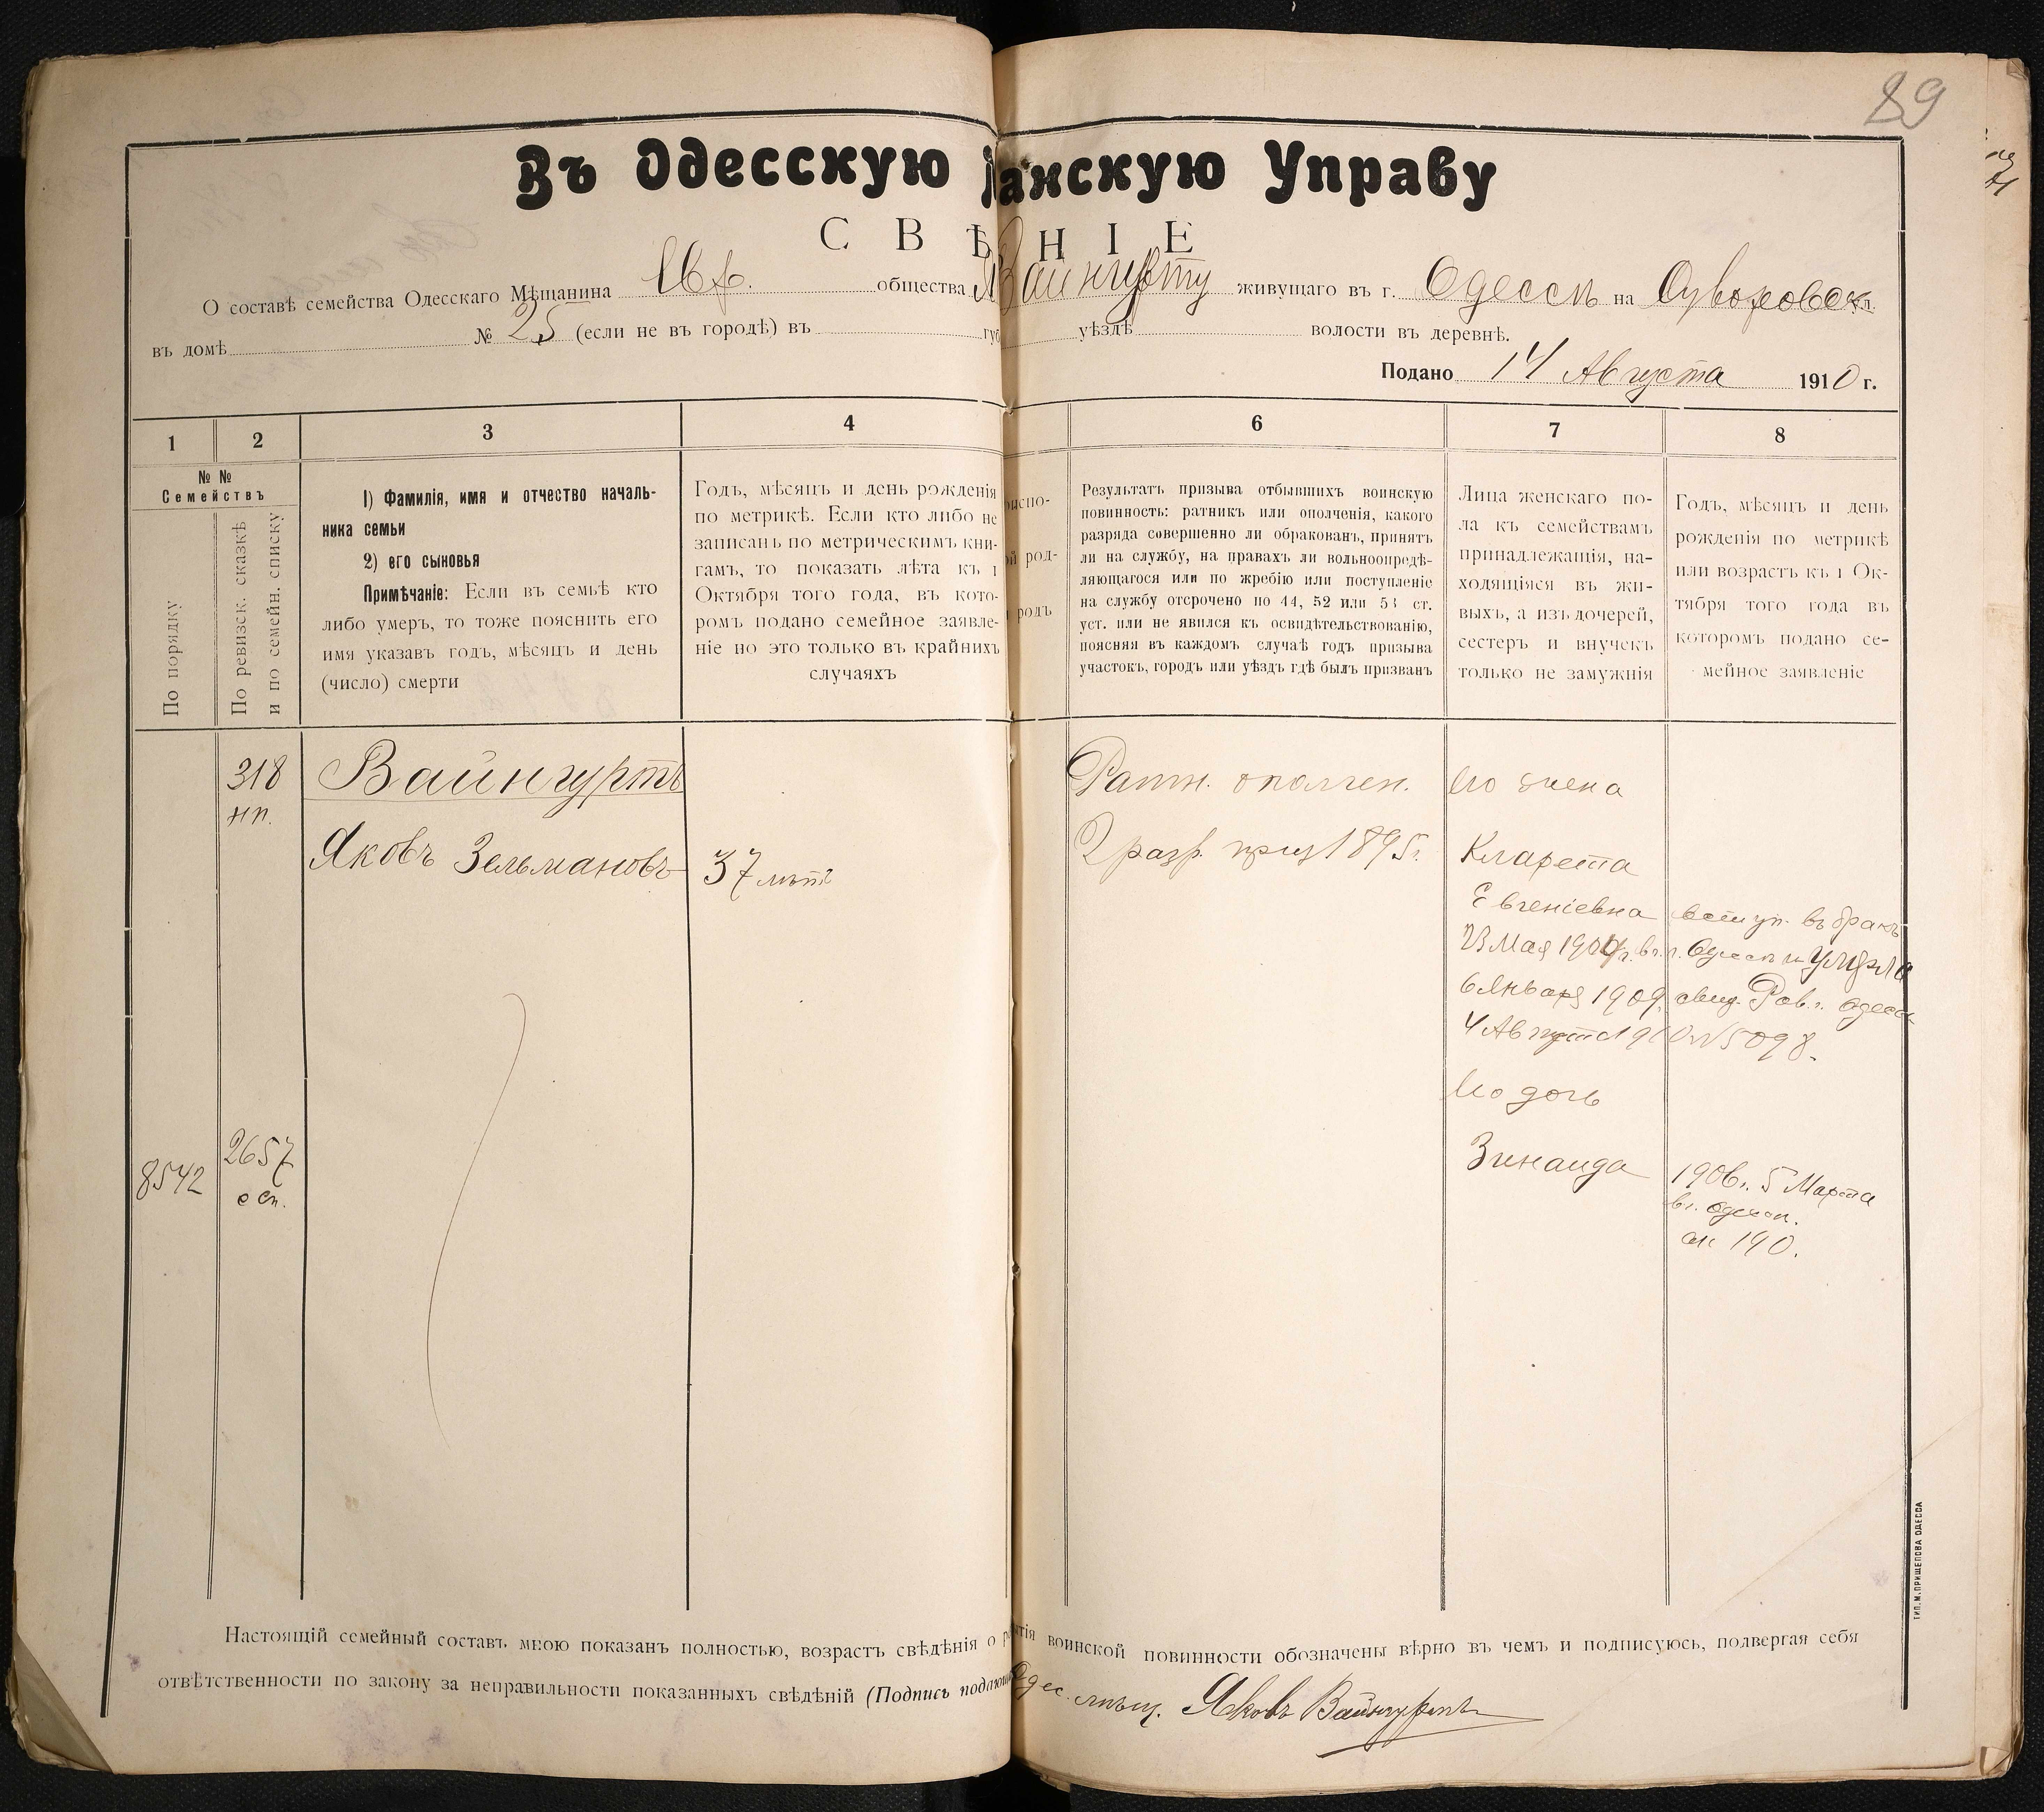 89
Въ Одесскую анскую Управу
СВѢ НІЕ
О составѣ семейства Одесскаго Мѣщанина Евр. общества Я Вайнгурту живущаго въ г. Одессѣ на Суворовск ул.
въ домѣ № 25 (если не въ городѣ) въ губ уѣздѣ волости въ деревнѣ.
Подано 14 Августа 1910 г.
1 2 3 4 6 7 8
№ №
Семействъ
По порядку
По ревизск. сказкѣ
и по семейн. списку
1) Фамилія, имя и отчество началь-
ника семьи
2) его сыновья
Примѣчаніе: Если въ семьѣ кто
либо умеръ, то тоже пояснить его
имя указавъ годъ, мѣсяцъ и день
(число) смерти
Годъ, мѣсяцъ и день рожденія
по метрикѣ. Если кто либо не
записанъ по метрическимъ кни-
гамъ, то показать лѣта къ 1
Октября того года, въ кото-
ромъ подано семейное заявле-
ніе но это только въ крайнихъ
случаяхъ
исно-
й род-
родъ
Результатъ призыва отбывшихъ воинскую
повинность: ратникъ или ополченія, какого
разряда совершенно ли обракованъ, принятъ
ли на службу, на правахъ ли вольноопредѣ-
ляющагося или по жребію или поступленіе
на службу отсрочено по 44, 52 или 53 ст.
уст. или не явился къ освидѣтельствованію,
поясняя въ каждомъ случаѣ годъ призыва
участокъ, городъ или уѣздъ гдѣ былъ призванъ
Лица женскаго по-
ла къ семействамъ
принадлежащія, на-
ходящіяся въ жи-
выхъ, а изъ дочерей,
сестеръ и внучекъ
только не замужнія
Годъ, мѣсяцъ и день
рожденія по метрикѣ
или возрастъ къ 1 Ок-
тября того года въ
которомъ подано се-
мейное заявленіе
318
нп.
Вайнгуртъ
Яковъ Зельмановъ
37 лѣтъ
Ратн. ополчен.
2 разр. приз 1895 г.
Его жена
Кларета
Евгеніевна вступ. въ бракъ
23 Мая 1904 г. въ г. Одессѣ и умерла
6 Января 1909 свид. Рав. г. Одессы
4 Августа 1910 № 5098.
Его дочь
8542
2657
с сп.
Зинаида
1906 г. 5 Марта
в г. Одессѣ.
ак 190.
Настоящій семейный составъ мною показанъ полностью, возрастъ свѣдѣнія о тія воинской повинности обозначены вѣрно въ чемъ и подписуюсь, подвергая себя
отвѣтственности по закону за неправильности показанныхъ свѣдѣній (Подпись подающ Одес. мѣщ. Яковъ Вайнгуртъ
ТИП. М. ПРИЩЕПОВА ОДЕССА